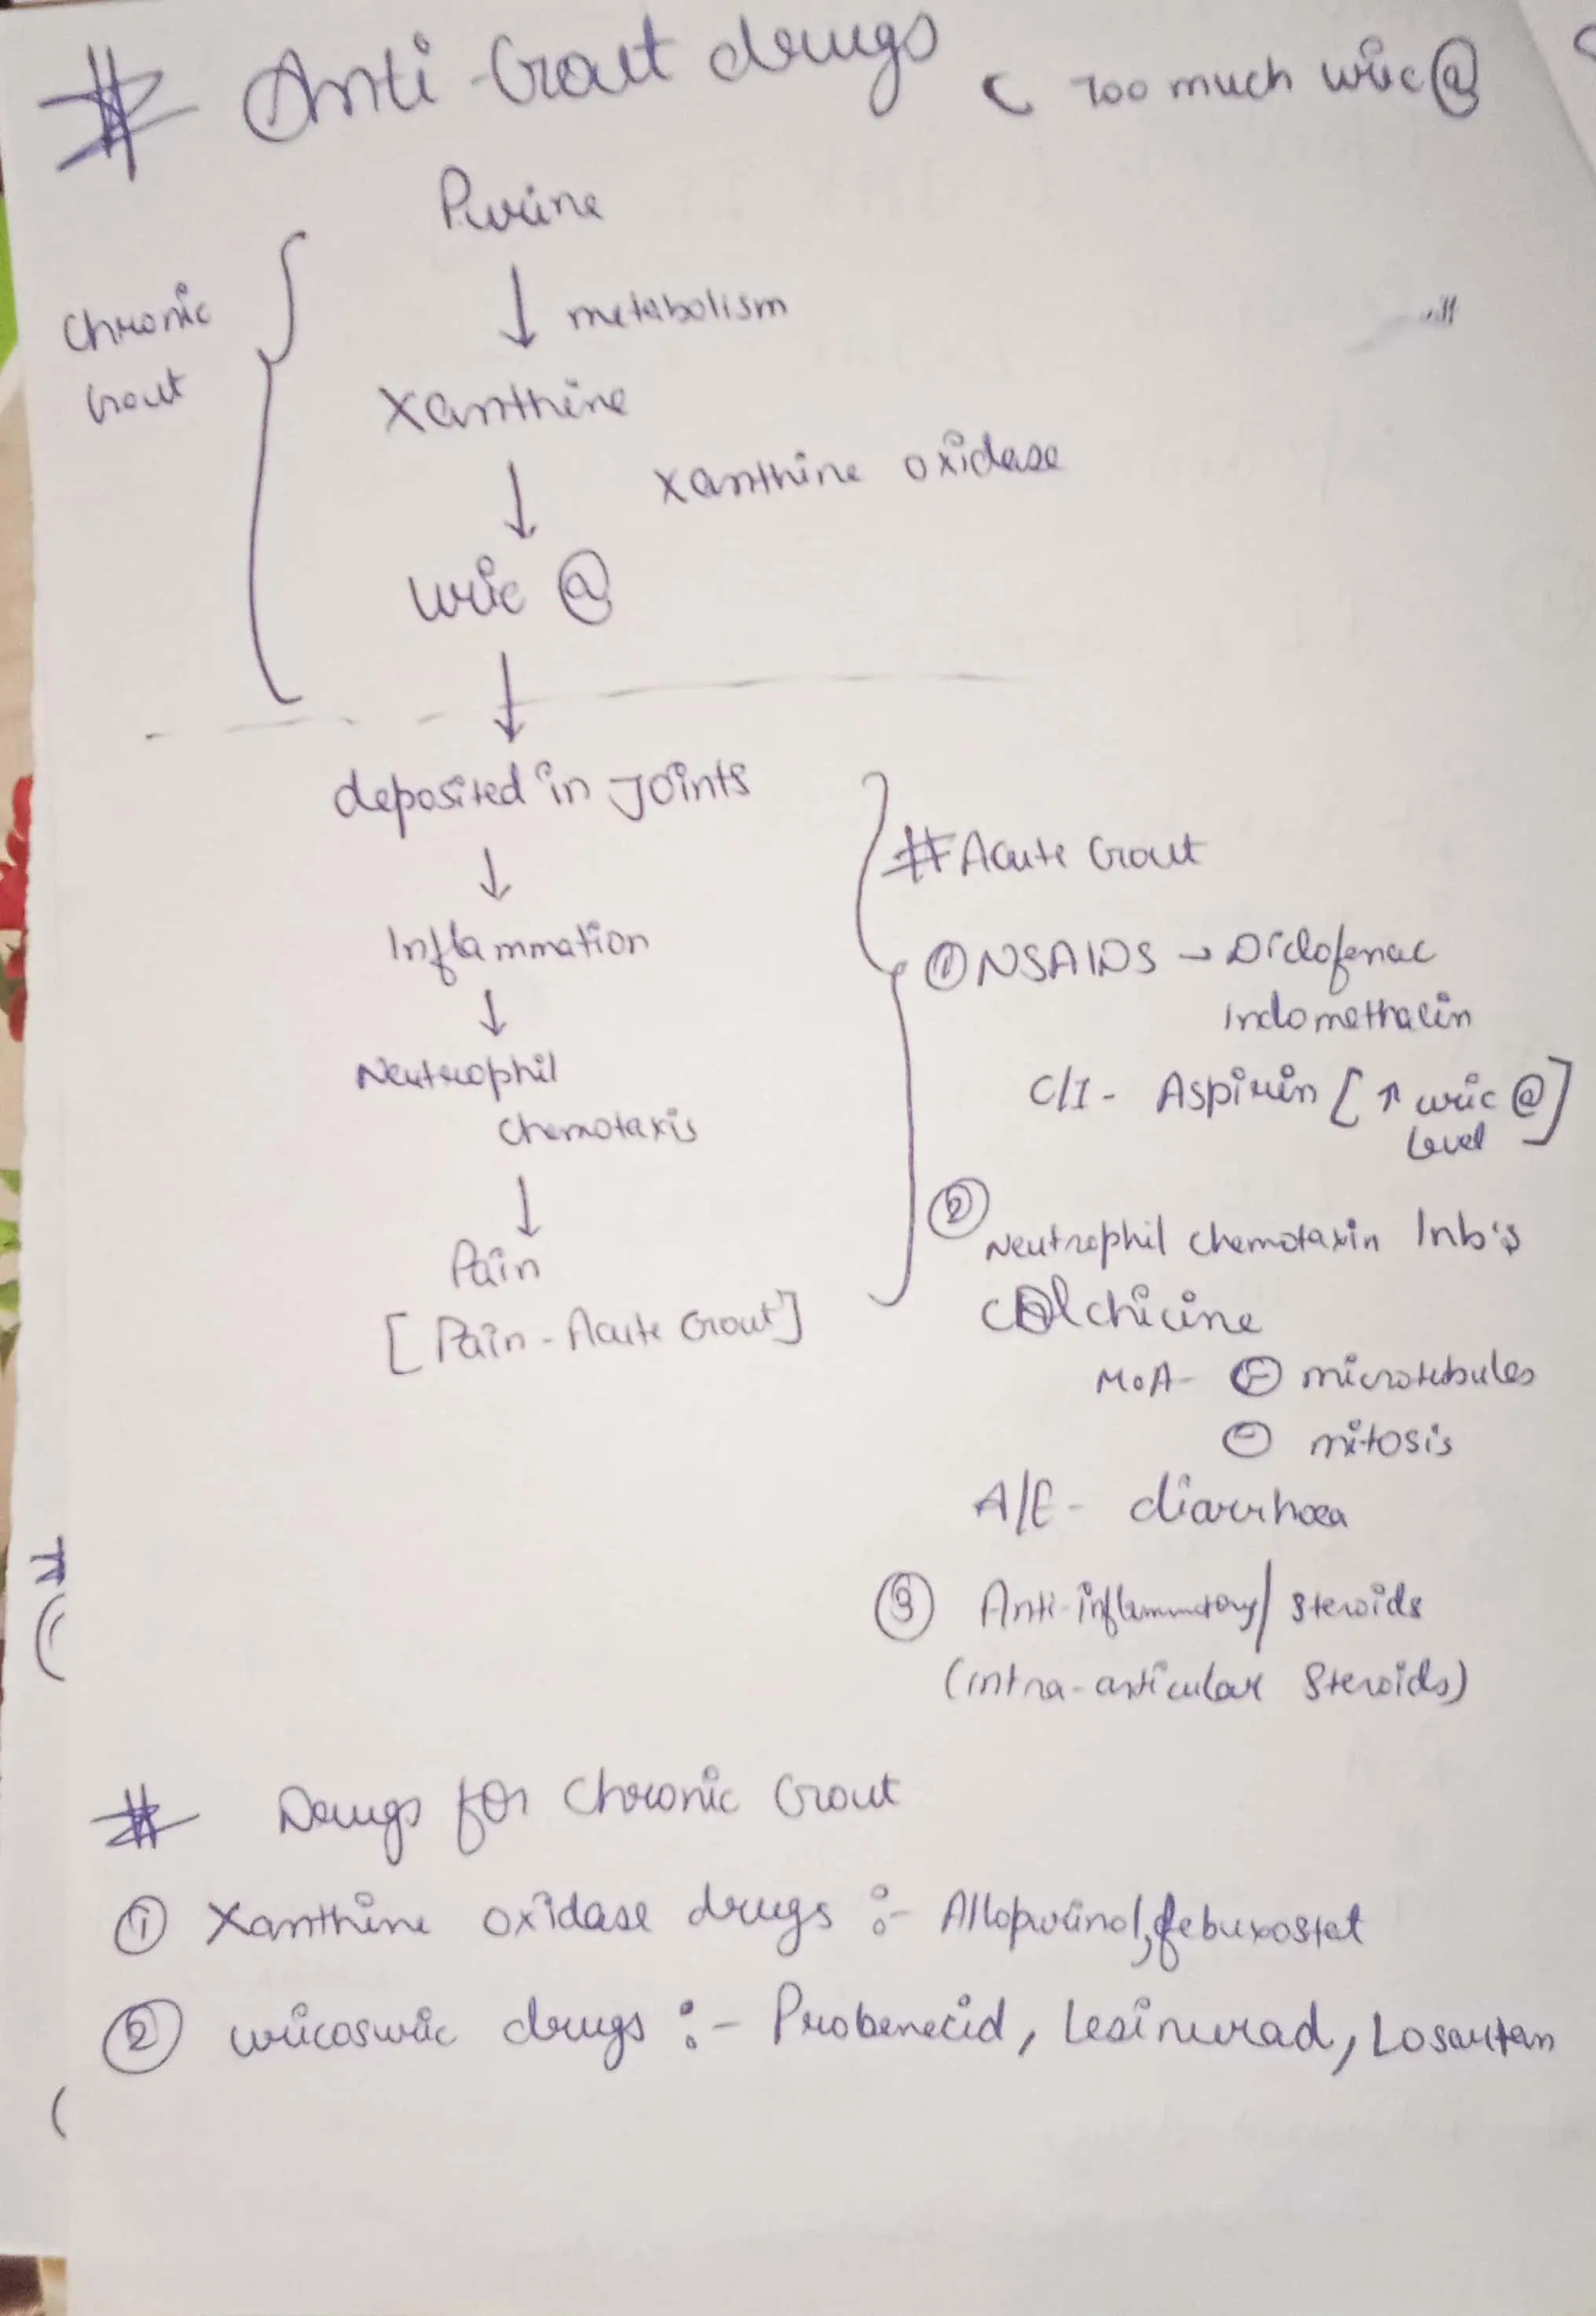 # Anti-Gout drugs ( Too much uric @
Purine
↓ metabolism
Chronic
Gout
Xanthine
↓ Xanthine oxidase
Uric @
↓
deposited in Joints
↓
Inflammation
↓
Neutrophil
chemotaxis
↓
Pain
[Pain - Acute Gout]
# Acute Gout
① NSAIDS → Diclofenac
Indomethacin
C/I - Aspirin [↑ uric @
level]
② Neutrophil chemotaxin Inb's
COlchicine
MOA- ⊖ microtubules
⊖ mitosis
A/E - diarrhoea
③ Anti-inflammatory/ steroids
(intra-articular Steroids)
# Drugs for Chronic Gout
① Xanthine oxidase drugs :- Allopurinol, febuxostat
② uricosuric drugs :- Probenecid, Lesinurad, Losartan